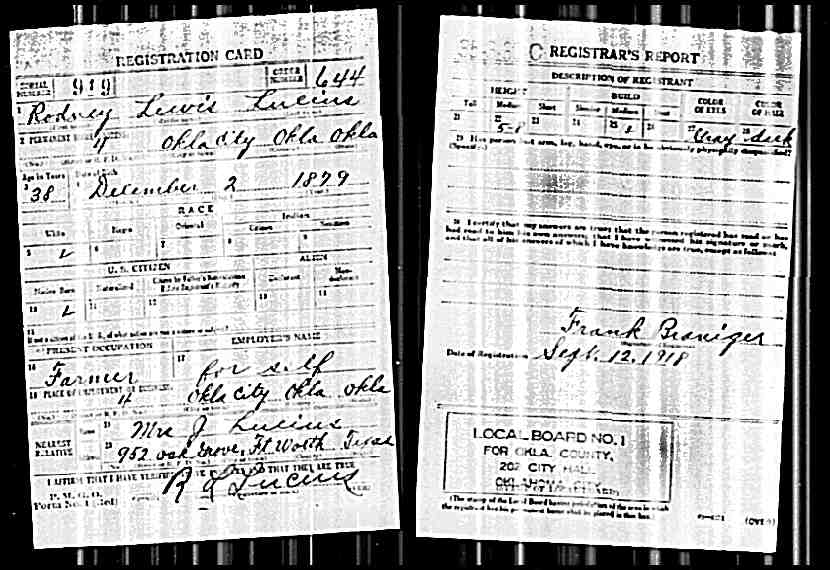 REGISTRATION CARD
SERIAL NUMBER 919 ORDER NUMBER 644
1 Rodney Lewis Lucius
2 PERMANENT HOME ADDRESS
4 Okla City Okla Okla
Age in Years Date of Birth
38 December 2 1879
RACE
White Negro Oriental Indian
Citizen Noncitizen
5 6 7 8 9
U. S. CITIZEN ALIEN
Native Born Naturalized Citizen by Father's Naturalization Before Registrant's Majority Declarant Non-declarant
10 11 12 13 14
15
PRESENT OCCUPATION EMPLOYER'S NAME
16 Farmer 17 for self
18 PLACE OF EMPLOYMENT OR BUSINESS
4 Okla City Okla Okla
NEAREST RELATIVE
Name 19 Mrs J Lucius
Address 20 952 oak Grove, Ft Worth Texas
I AFFIRM THAT I HAVE VERIFIED ABOVE AND THAT THEY ARE TRUE
P. M. G. O.
Form No. 1 (Red) R L Lucius
C REGISTRAR'S REPORT
DESCRIPTION OF REGISTRANT
HEIGHT BUILD COLOR OF EYES COLOR OF HAIR
Tall Medium Short Slender Medium Stout
21 22 5-8 23 24 25 26 27 Gray 28 dark
29 Has person lost arm, leg, hand, eye, or is he obviously physically disqualified?
(Specify.)
30 I certify that my answers are true; that the person registered has read or has
had read to him his own answers; that I have witnessed his signature or mark,
and that all of his answers of which I have knowledge are true, except as follows:
Frank
Date of Registration Sept. 12, 1918
LOCAL BOARD NO. 1
FOR OKLA. COUNTY,
202 CITY HALL
OKLAHOMA CITY
(The stamp of the Local Board having jurisdiction of the area in which
the registrant has his permanent home shall be placed in this box.)
(OVER)